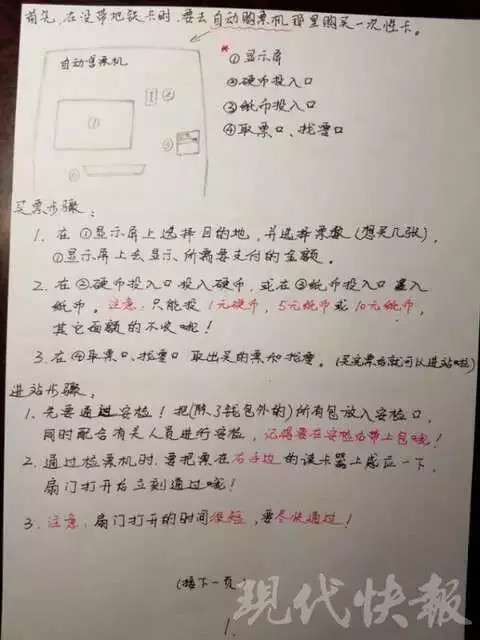 首先,在没带地铁卡时,要去自动购票机那里购买一次性卡。
自动售票机
①
②
③
④
*①显示屏
②硬币投入口
③纸币投入口
④取票口、找零口
买票步骤:
1. 在①显示屏上选择目的地,并选择票数(想买几张),
①显示屏上会显示所需要支付的金额。
2. 在②硬币投入口投入硬币,或在③纸币投入口塞入
纸币。注意:只能投1元硬币,5元纸币或10元纸币,
其它面额的不收哦!
3. 在④取票口、找零口取出买的票和找零。(买完票后就可以进站啦)
进站步骤:
1. 先要通过安检!把(除了钱包外的)所有包放入安检口,
同时配合有关人员进行安检,记得要在安检后带上包哦!
2. 通过检票机时,要把票在右手边的读卡器上感应一下,
扇门打开后立刻通过哦!
3. 注意:扇门打开的时间很短,要尽快通过!
(接下一页)
现代快報
1.